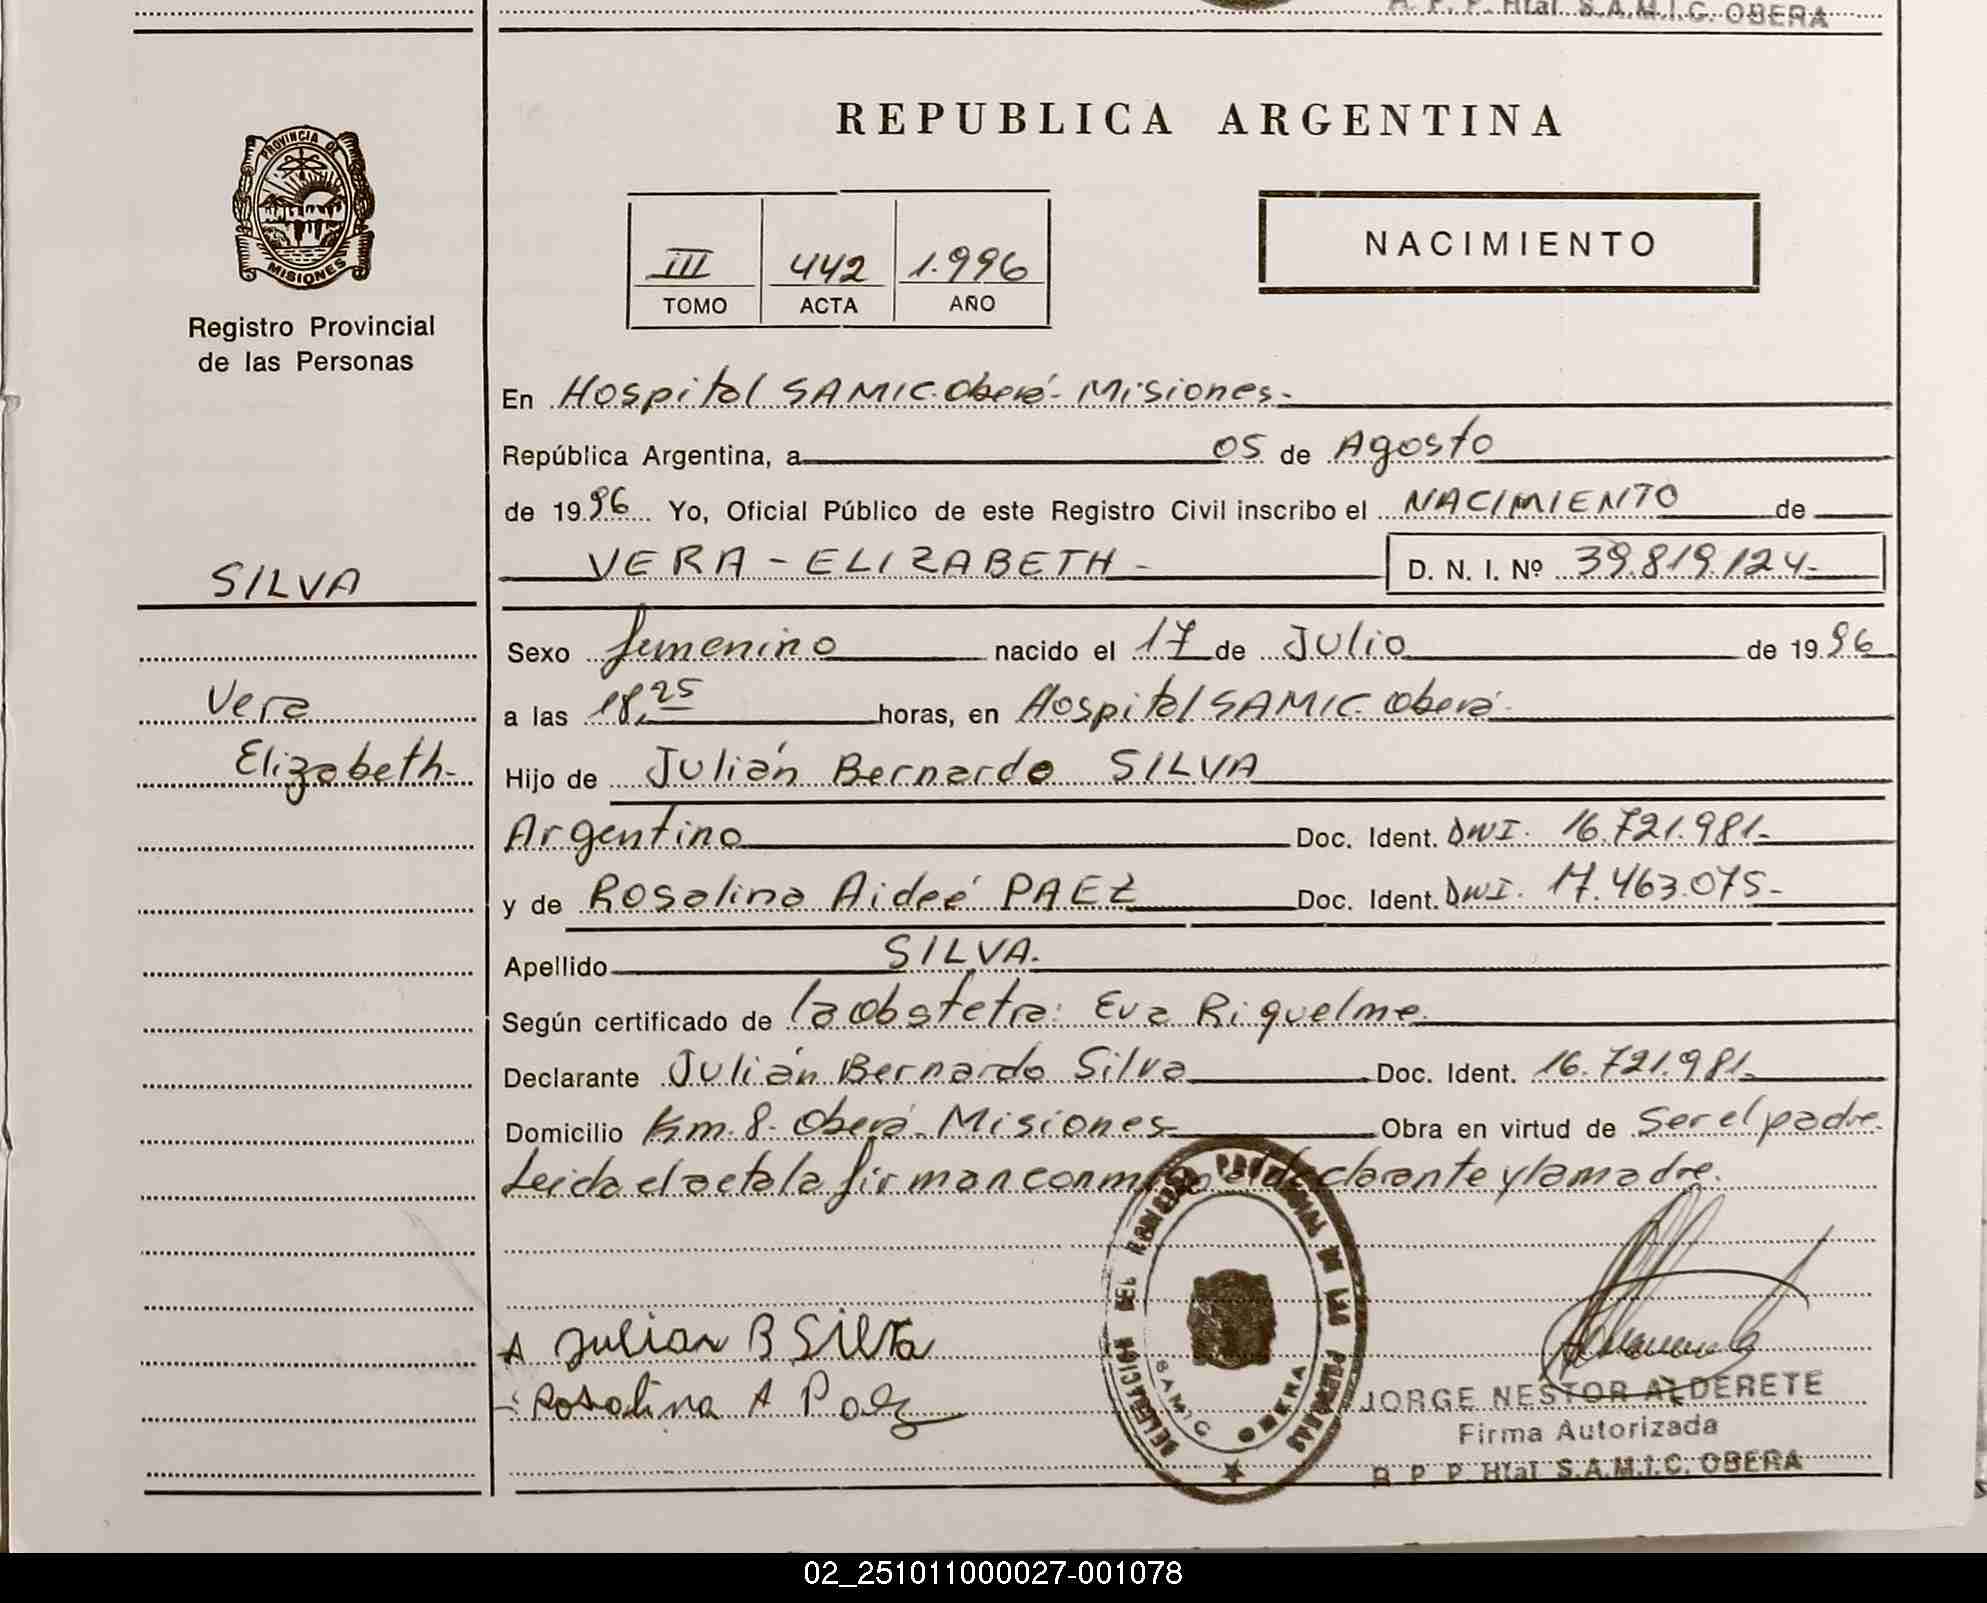 R. P. P. Htal S.A.M.I.C. OBERA
REPUBLICA ARGENTINA
PROVINCIA DE
MISIONES
Registro Provincial
de las Personas
III 442 1.996
TOMO ACTA AÑO
NACIMIENTO
En Hospital SAMIC. Oberá - Misiones.-
República Argentina, a 05 de Agosto
de 1996 Yo, Oficial Público de este Registro Civil inscribo el NACIMIENTO de
VERA - ELIZABETH - D. N. I. Nº 39.819.124.-
SILVA
Sexo femenino nacido el 17 de Julio de 1996
Vera
a las 18,25 horas, en Hospital SAMIC. Oberá.
Elizabeth.-
Hijo de Julián Bernardo SILVA
Argentino Doc. Ident. DNI. 16.721.981.-
y de Rosalina Aideé PAEZ Doc. Ident. DNI. 17.463.075.-
Apellido SILVA.
Según certificado de la obstetra: Eva Riquelme.
Declarante Julián Bernardo Silva Doc. Ident. 16.721.981.-
Domicilio Km. 8. Oberá. Misiones Obra en virtud de Ser el padre.
Leida el acta la firman conmigo el declarante y la madre.
DELEGACION DEL REGISTRO PROVINCIAL DE LAS PERSONAS
SAMIC OBERA
Julian B Silva
Rosalina A Paez
JORGE NESTOR ALDERETE
Firma Autorizada
R. P. P. Htal S.A.M.I.C. OBERA
02_251011000027-001078